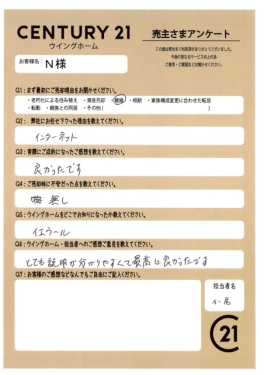 CENTURY 21
ウイングホーム
売主さまアンケート
この度は弊社をご利用頂きありがとうございました。
今後の更なるサービス向上の為
ご意見・ご感想をお聞かせください。
お客様名: N様
Q1:まず最初にご売却理由をお聞かせください。
・老朽化による住み替え ・資産売却 ・離婚 ・相続 ・家族構成変更に合わせた転居
・転勤 ・親族との同居 ・その他( )
Q2: 弊社にお任せ下さった理由を教えてください。
インターネット
Q3:実際にご成約になったご感想を教えてください。
良かったです
Q4:ご売却時に不安だった点を教えてください。
無し
Q5:ウイングホームをどこでお知りになったか教えてください。
イエウール
Q6:ウイングホーム・担当者へのご感想ご意見を教えてください。
とても説明が分かりやすくて最高に良かったです
Q7:お客様のご感想などなんでもご自由にご記入ください。
担当者名
21